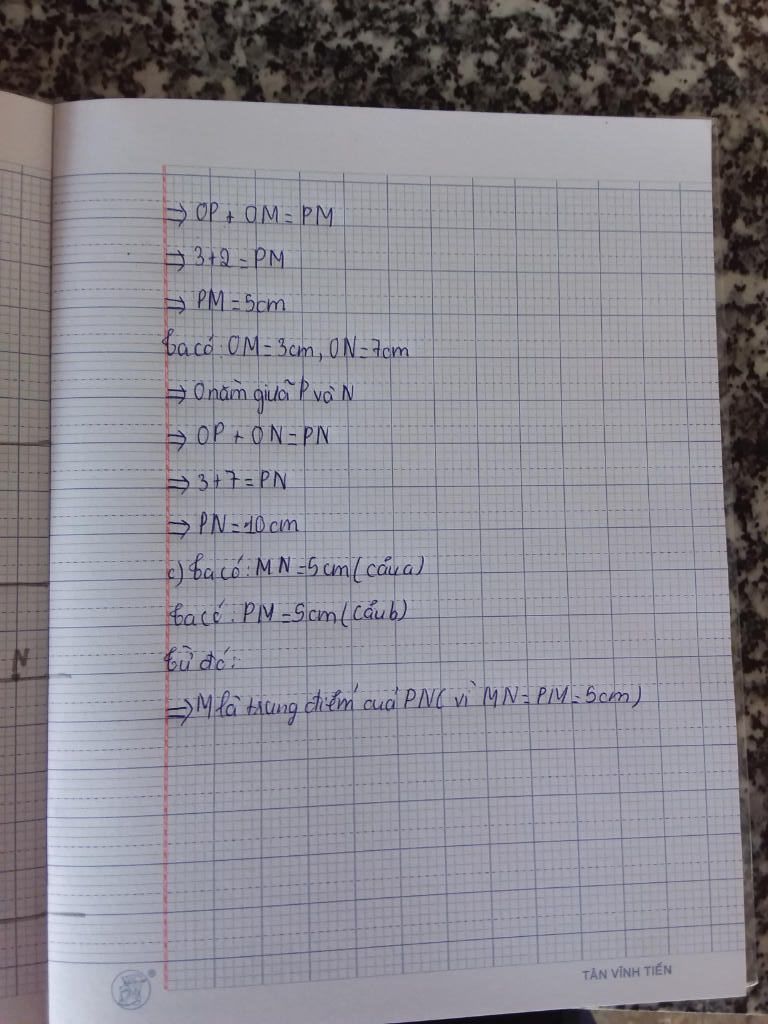 ⇒ OP + OM = PM
⇒ 3+2 = PM
⇒ PM = 5cm
Ta có: OM = 3cm, ON = 7cm
⇒ O nằm giữa P và N
⇒ OP + ON = PN
⇒ 3+7 = PN
⇒ PN = 10cm
c) Ta có: MN = 5cm (câu a)
Ta có: PM = 5cm (câu b)
N
Từ đó:
⇒ M là trung điểm của PN (vì MN = PM = 5cm)
TÂN VĨNH TIẾN